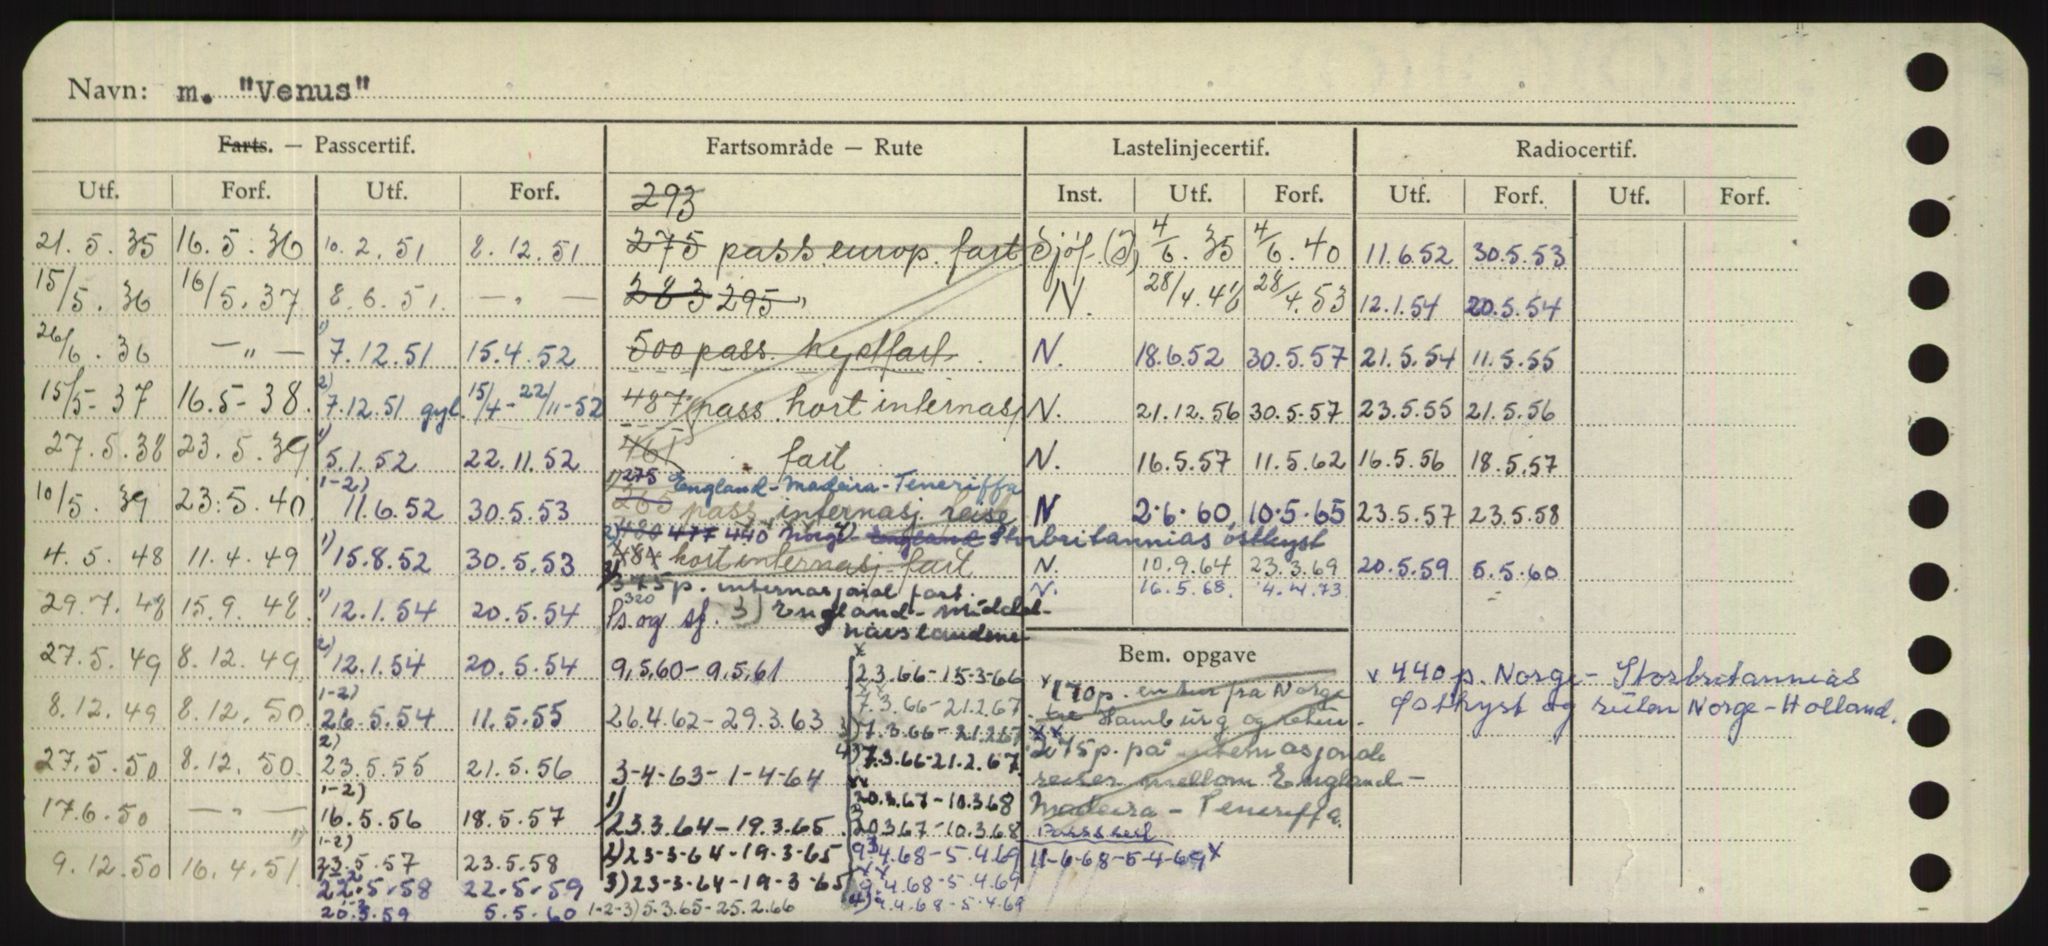 Navn: m. "Venus"
Farts. — Passcertif. Fartsområde — Rute Lastelinjecertif. Radiocertif.
Utf. Forf. Utf. Forf. 293 Inst. Utf. Forf. Utf. Forf. Utf. Forf.
21.5.35 16.5.36 10.2.51 8.12.51 275 pass europ. fart Sjöf.(S) 4/6.35 4/6.40 11.6.52 30.5.53
15/5.36 16/5.37 8.6.51. — " — 283 295 " N. 28/4.48 28/4.53 12.1.54 20.5.54
26/6.36 — " — 1) 7.12.51 15.4.52 500 pass. N. 18.6.52 30.5.57 21.5.54 11.5.55
15/5-37 16.5-38. 2) 7.12.51 gyl. 15/4-22/11-52 487 pass. kort internasj N. 21.12.56 30.5.57 23.5.55 21.5.56
27.5.38 23.5.39 1) 5.1.52 22.11.52 461 fart N. 16.5.57 11.5.62 16.5.56 18.5.57
1) 275 England-Madeira-Teneriffa
10/5.39 23.5.40 1-2) 11.6.52 30.5.53 265 pass internasj reise N 2.6.60 10.5.65 23.5.57 23.5.58
2) 480 477 440 Norge- England Storbritannias östkyst
4.5.48 11.4.49 1) 15.8.52 30.5.53 484 kort internasj. fart N. 10.9.64 23.3.69 20.5.59 5.5.60
3) 375 p. internasjonal fart. N. 16.5.68. 4.4.73.
29.7.48 15.9.48 1) 12.1.54 20.5.54 320 Ps og sf. 3) England-middel-
havslandene
Bem. opgave
27.5.49 8.12.49 2) 12.1.54 20.5.54 9.5.60-9.5.61 x 23.66-15-3-66
x 170p. en tur fra Norge x 440 p. Norge-Storbritannias
8.12.49 8.12.50. 1-2) 26.5.54 11.5.55 26.4.62-29.3.63 7.3.66-21.2.67 Hamburg og retur. Østkyst og ruten Norge-Holland.
3) 7.3.66-21.2.67 xx
27.5.50 8.12.50. 2) 23.5.55 21.5.56 3-4-63-1-4-64 4) 7.3.66-21.2.67 275p. på internasjonale
reiser mellom England-
17.6.50 — " — 1-2) 16.5.56 18.5.57 1) 23.3.64-19.3.65. xx 20.3.67-10.3.68 Madeira-Teneriffa.
20.3.67-10.3.68 Passsert
9.12.50 16.4.51. 1-2) 23.5.57 23.5.58 2) 23-3-64-19-3-65 9.4.68-5.4.69 11-6-68-5-4-69 x
22.5.58 22.5.59 3) 23-3-64-19-3-65 xx 9.4.68-5.4.69
20.5.59 5.5.60 1-2-3) 5.3.65-25.2.66 4) 9.4.68-5.4.69